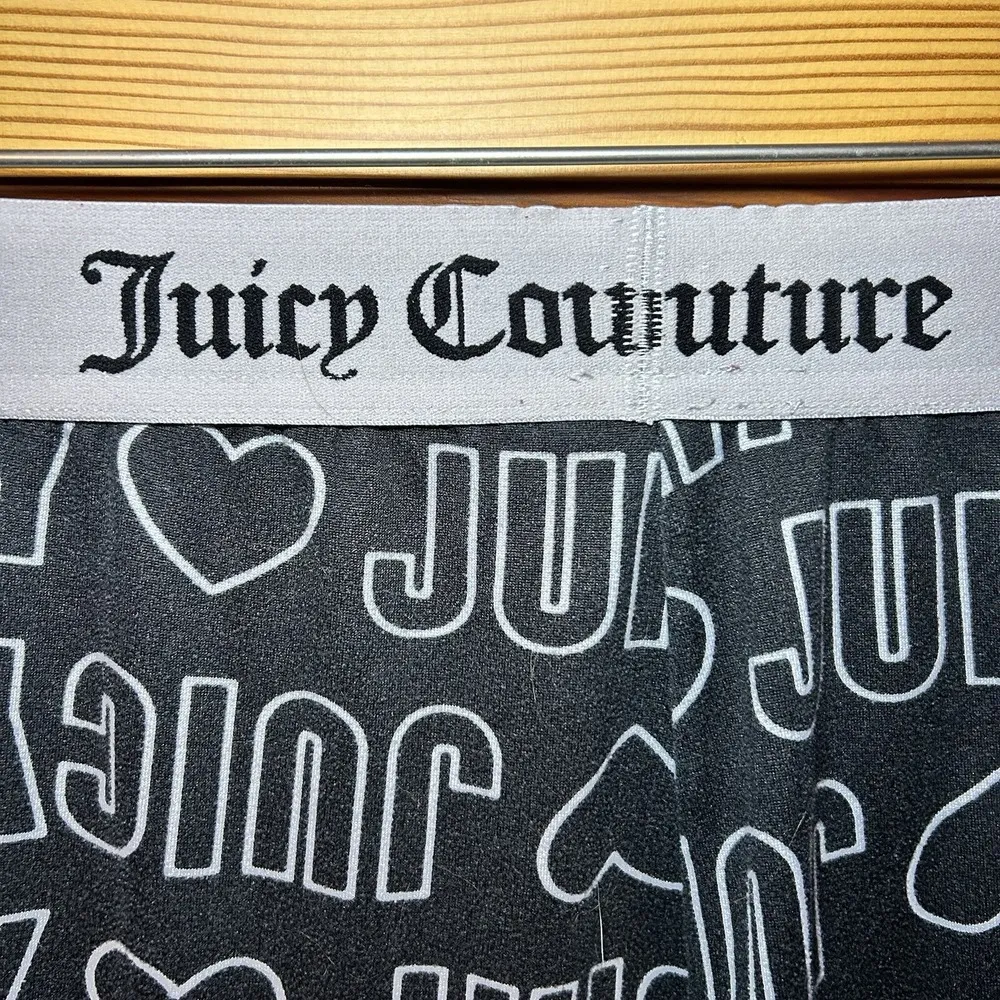 Juicy Couuture
JUI
JUI
JUIC
JU
JUI